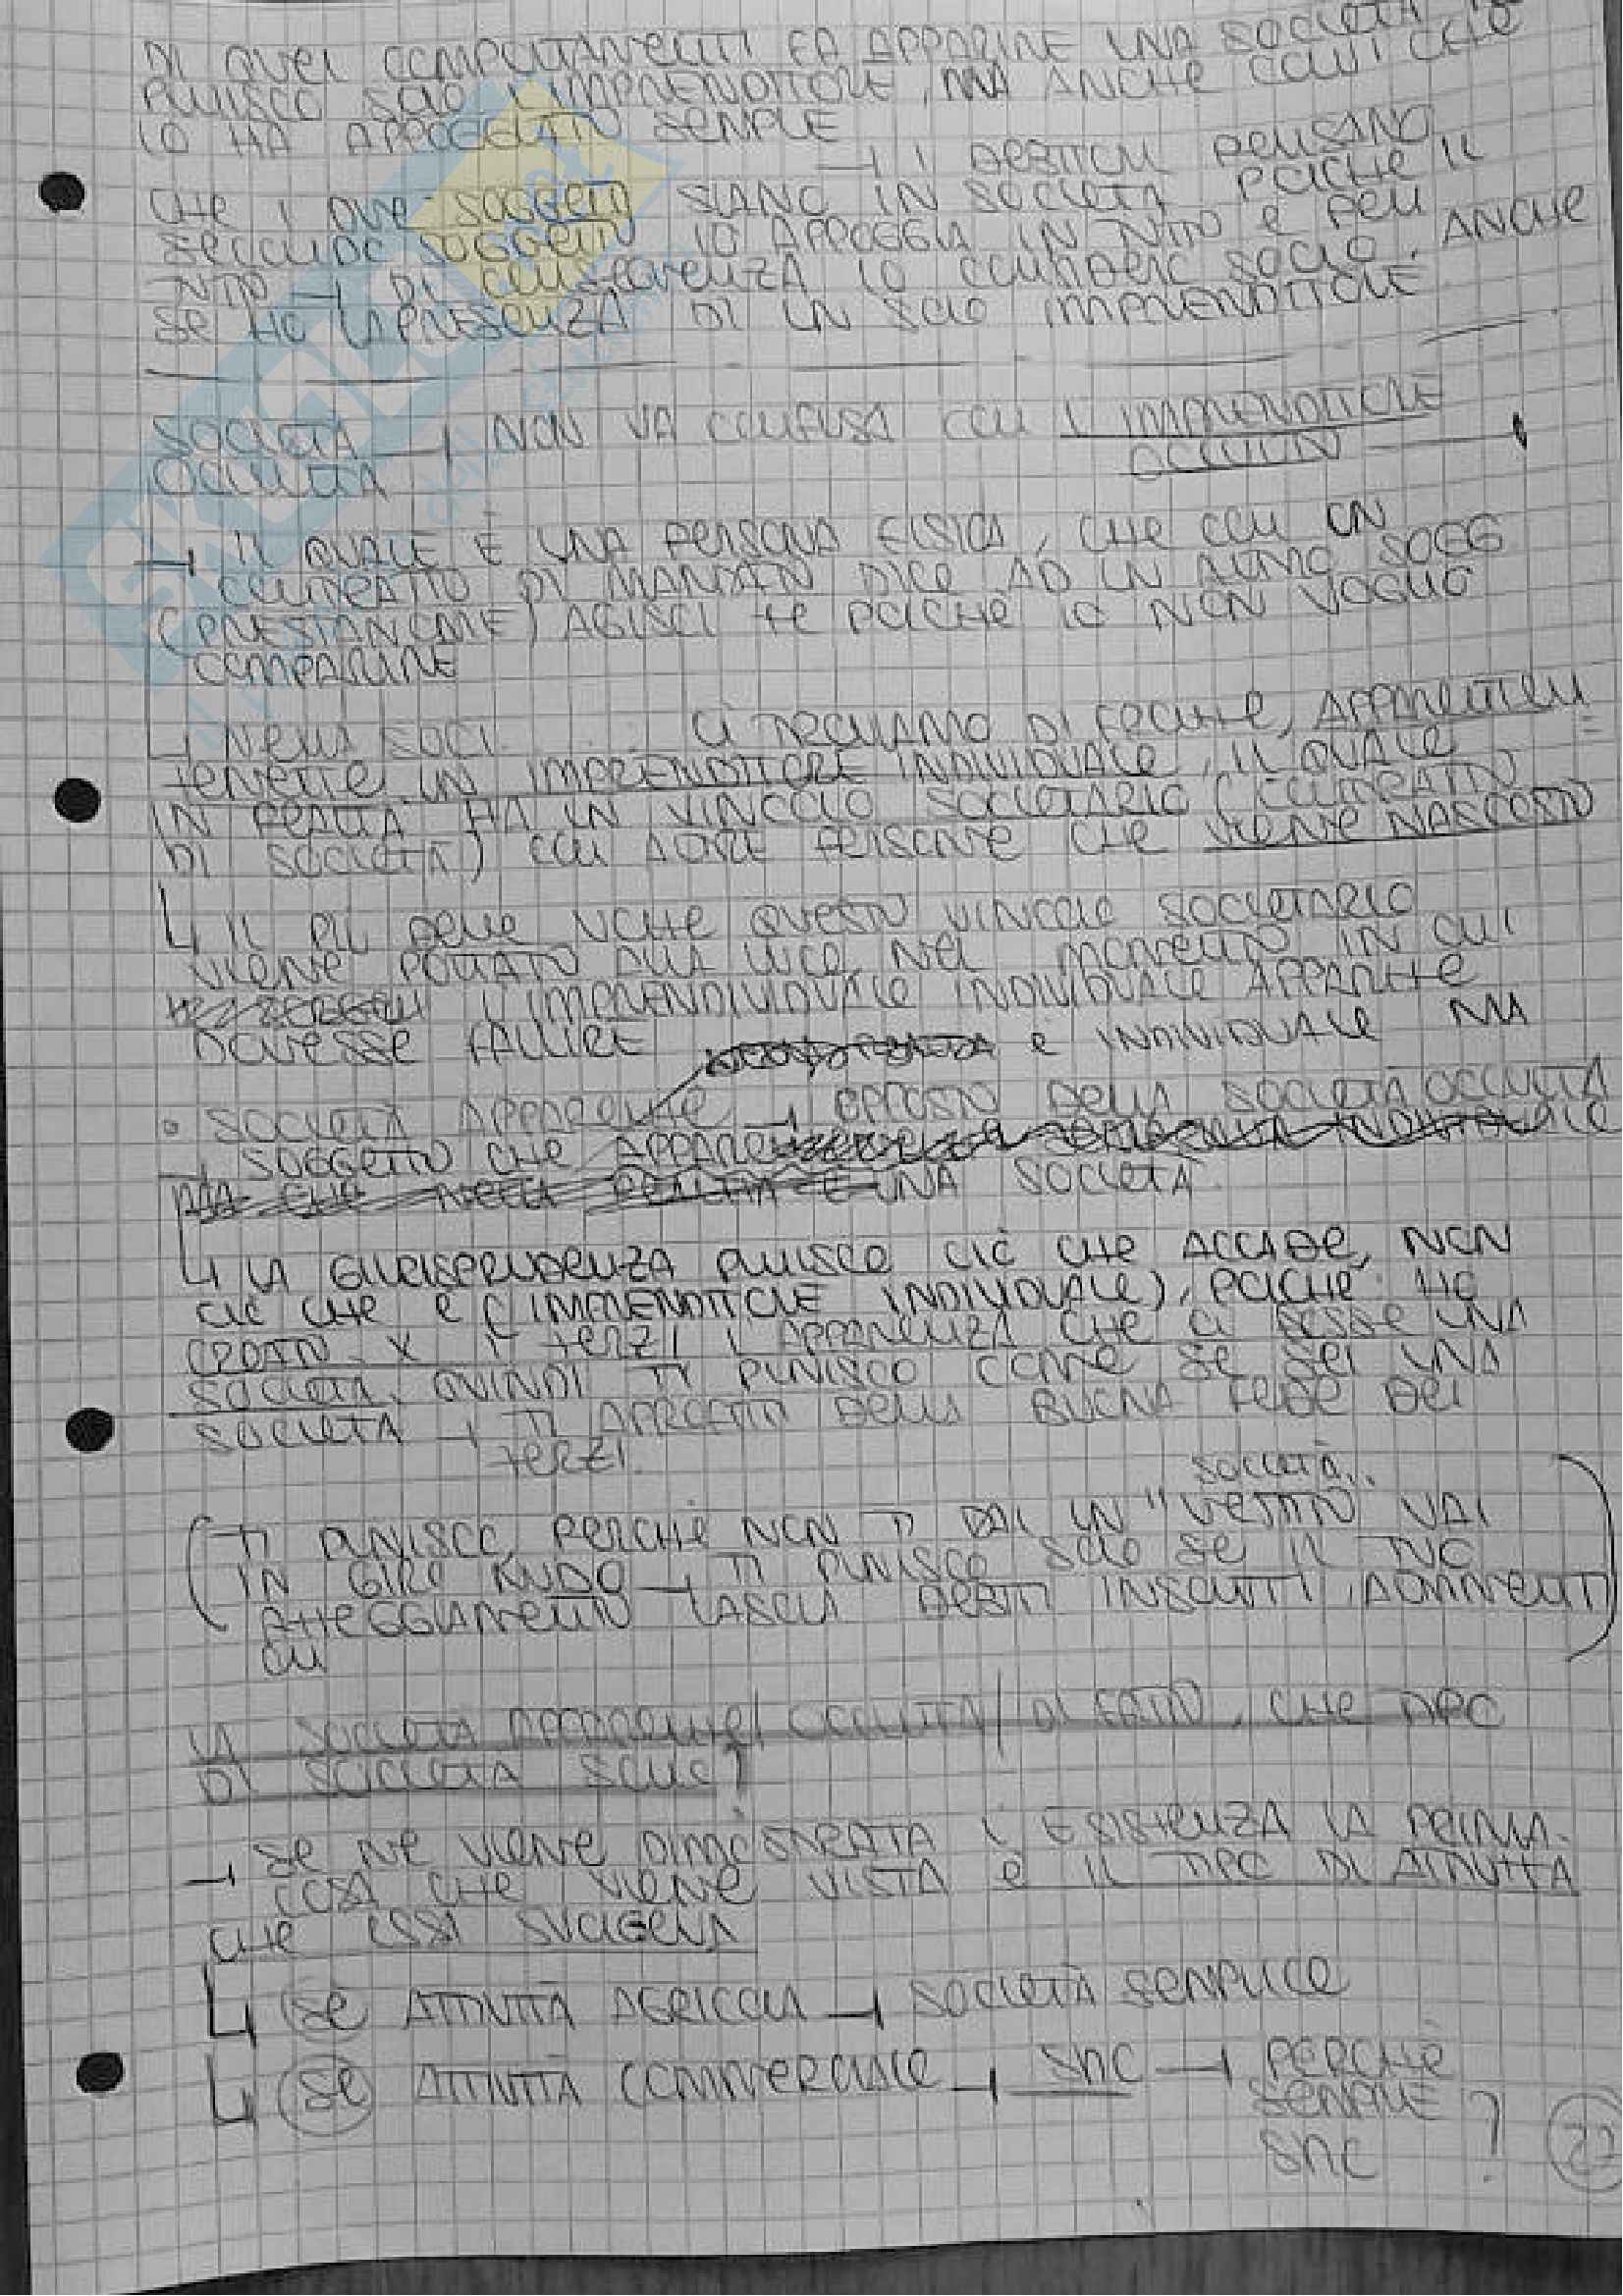 DI QUEI COMPORTAMENTI FA APPARIRE UNA SOCIETÀ
PUNISCO SOLO L'IMPRENDITORE, MA ANCHE COLUI CHE
LO HA APPOGGIATO SEMPRE
→ I DEBITORI PENSANO
CHE I DUE SOGGETTI SIANO IN SOCIETÀ POICHÈ IL
SECONDO SOGGETTO LO APPOGGIA IN TUTTO E PER
TUTTO → DI CONSEGUENZA LO CONSIDERO SOCIO, ANCHE
SE HO LA PRESENZA DI UN SOLO IMPRENDITORE
SOCIETÀ → NON VA CONFUSA CON L'IMPRENDITORE
OCCULTA OCCULTO
→ IL QUALE È UNA PERSONA FISICA, CHE CON UN
CONTRATTO DI MANDATO DICE AD UN ALTRO SOGG
(PRESTANOME) AGISCI TE POICHÈ IO NON VOGLIO
COMPARIRE
↳ NELLA SOCI. CI TROVIAMO DI FRONTE, APPARENTEM
= 
UN IMPRENDITORE INDIVIDUALE, IL QUALE
IN REALTÀ HA UN VINCOLO SOCIETARIO (CONTRATTO
DI SOCIETÀ) CON ALTRE PERSONE CHE VIENE NASCOSTO
↳ IL PIÙ DELLE VOLTE QUESTO VINCOLO SOCIETARIO
VIENE PORTATO ALLA LUCE, NEL MOMENTO IN CUI
L'IMPRENDIVIDUALE INDIVIDUALE APPARENTE
DOVESSE FALLIRE È INDIVIDUALE MA
• SOCIETÀ APPARENTE → OPPOSTO DELLA SOCIETÀ OCCULTA
→ SOGGETTO CHE APPARE
UNA SOCIETÀ.
↳ LA GIURISPRUDENZA PUNISCE CIÒ CHE ACCADE, NON
CIÒ CHE È (IMPRENDITORE INDIVIDUALE), POICHÈ HO
CREATO X I TERZI L'APPARENZA CHE CI FOSSE UNA
SOCIETÀ, QUINDI TI PUNISCO COME SE SEI UNA
SOCIETÀ → TI APPROFITTI DELLA BUONA FEDE DEI
TERZI.
SOCIETÀ..
(TI PUNISCE, PERCHÈ NON TI DAI UN "VESTITO VAI
IN GIRO NUDO → TI PUNISCE SOLO SE IL TUO
ATTEGGIAMENTO LASCIA DEBITI INSOLUTI, ALTRIMENTI)
LA SOCIETÀ APPARENTE/OCCULTA/DI FATTO, CHE TIPO
DI SOCIETÀ SONO?
→ SE NE VIENE DIMOSTRATA L'ESISTENZA LA PRIMA
COSA CHE VIENE VISTA È IL TIPO DI ATTIVITÀ
CHE ESSI SVOLGEVA
↳ SE ATTIVITÀ AGRICOLA → SOCIETÀ SEMPLICE
↳ SE ATTIVITÀ COMMERCIALE → SNC → PERCHÈ
SEMPRE
SNC ?